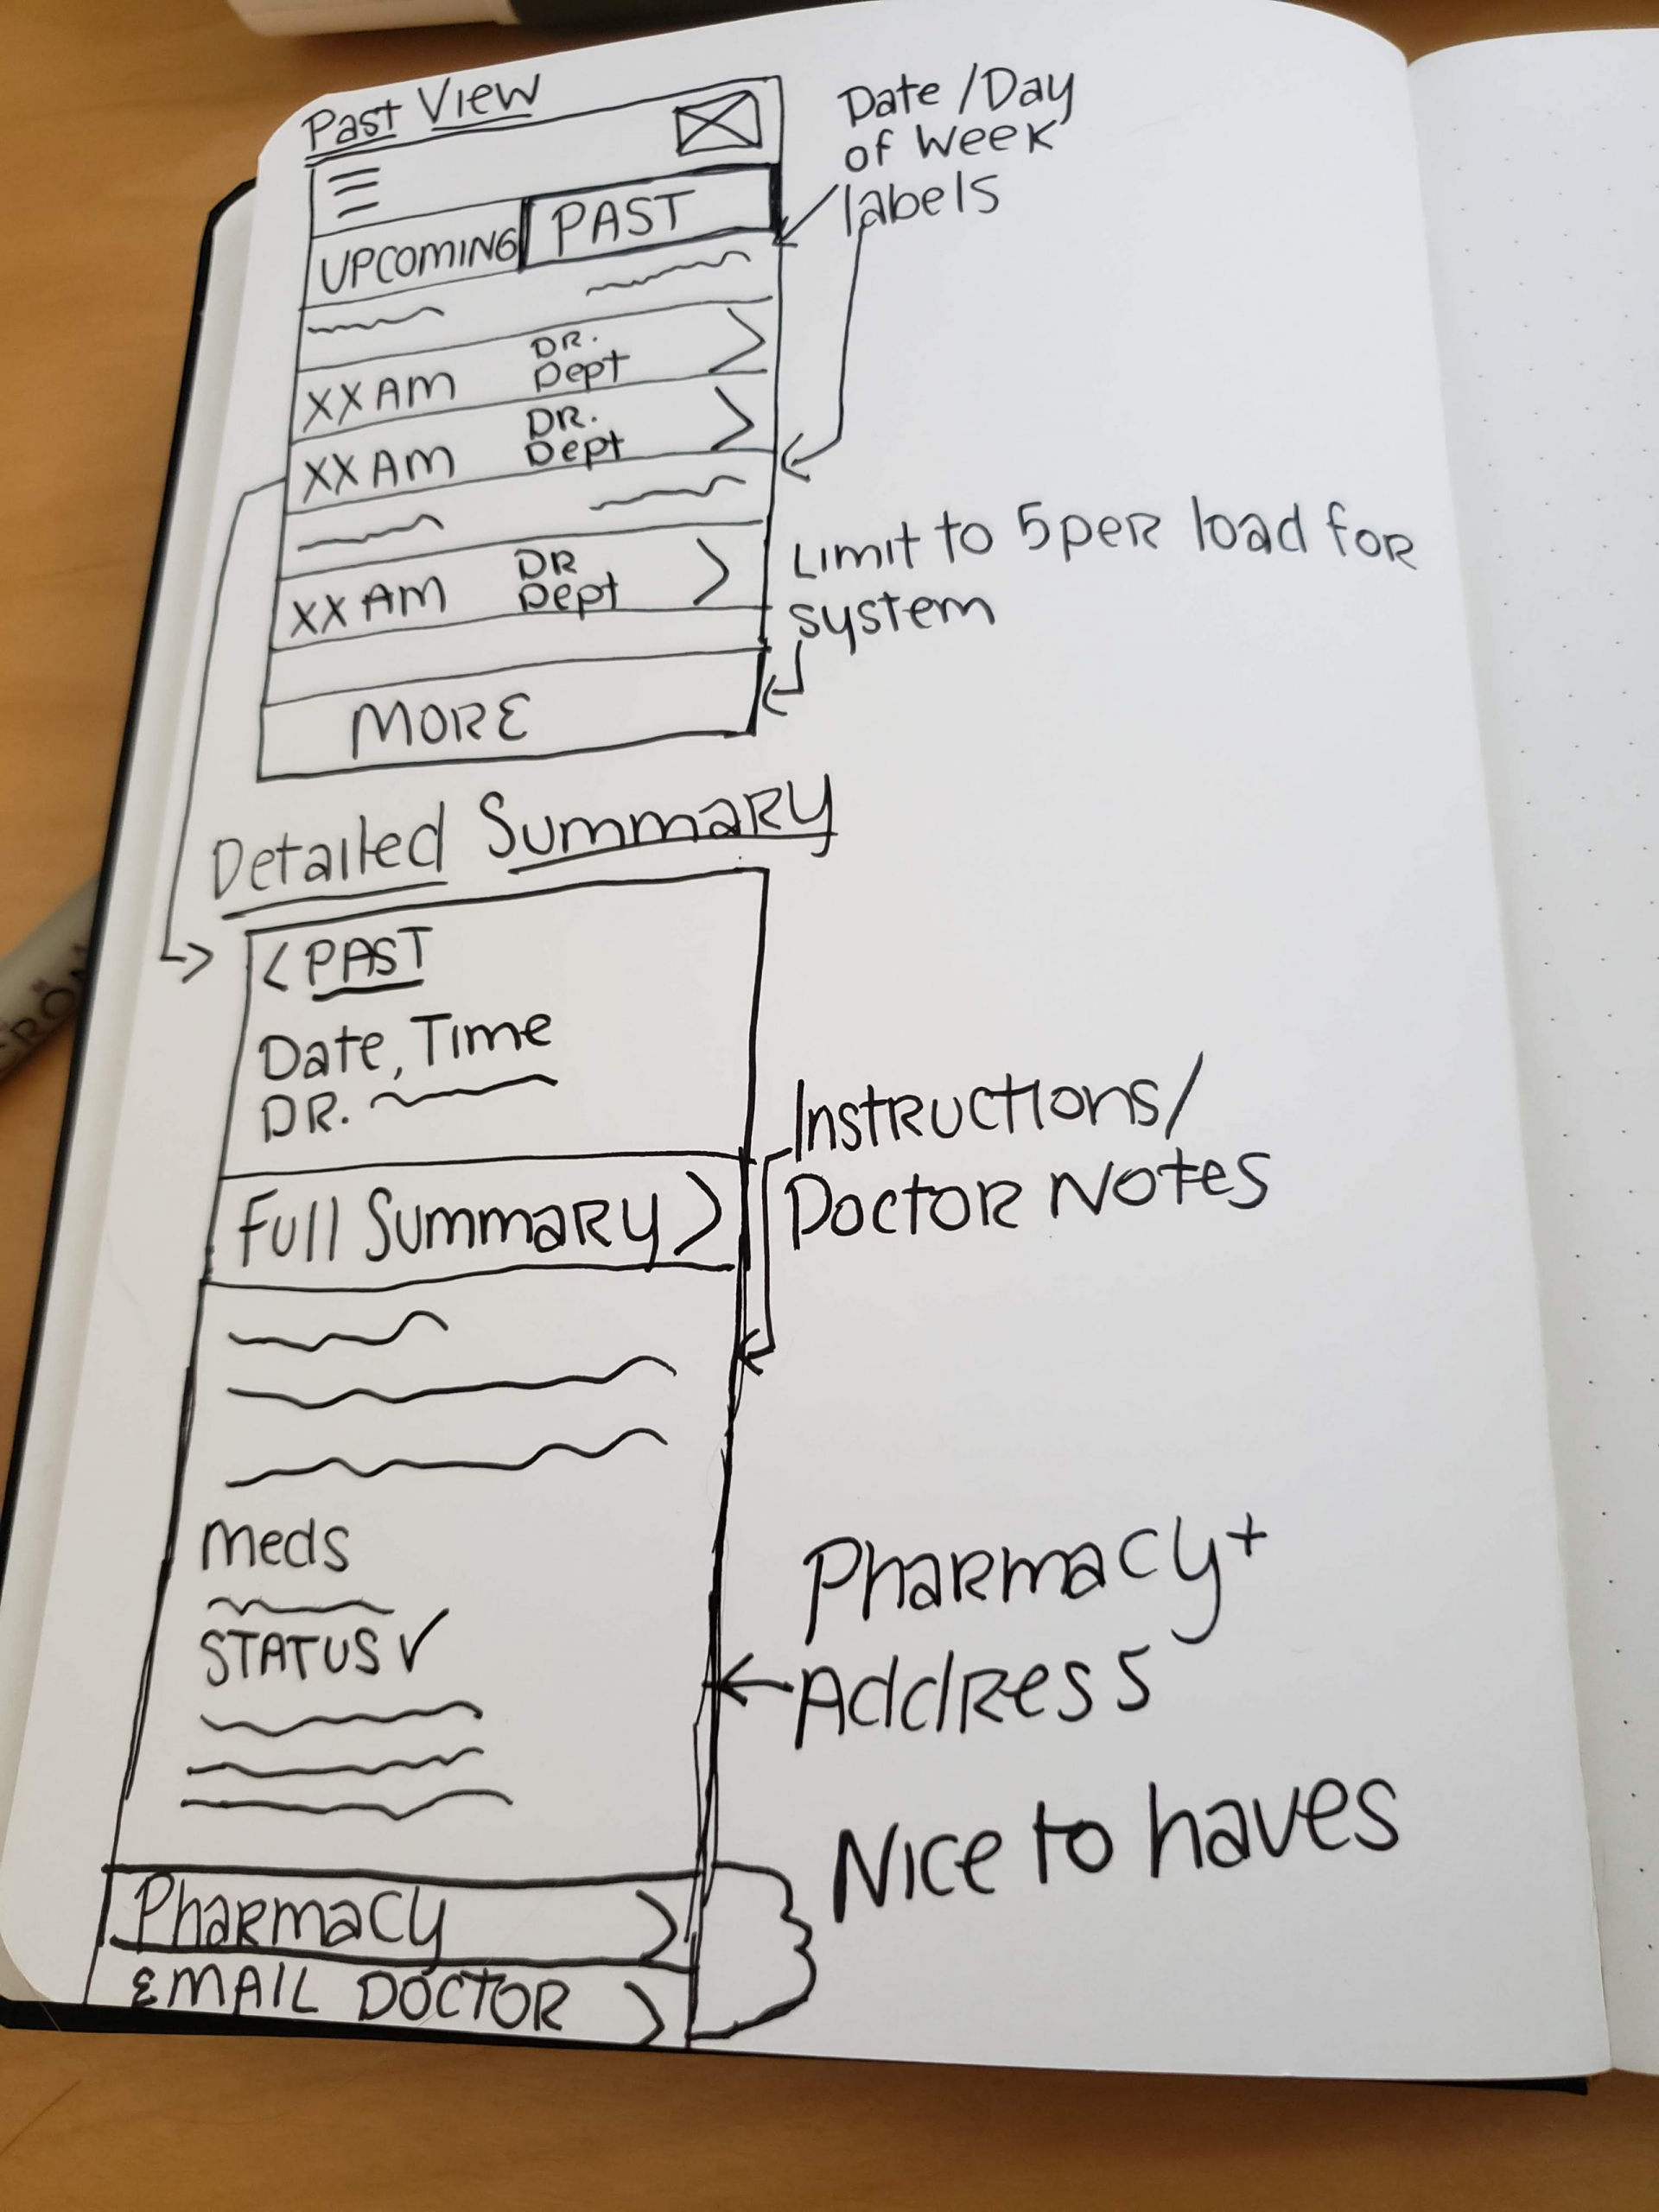 Past View
Date/Day
of week
labels
UPCOMING PAST
XX AM DR.
Dept >
XX AM DR.
Dept >
XX AM DR
Dept >
Limit to 5 per load for
system
MORE
Detailed Summary
< PAST
Date, Time
DR.
Full Summary >
Instructions/
Doctor Notes
Meds
STATUS ✓
Pharmacy +
Address
Nice to haves
Pharmacy >
EMAIL DOCTOR >